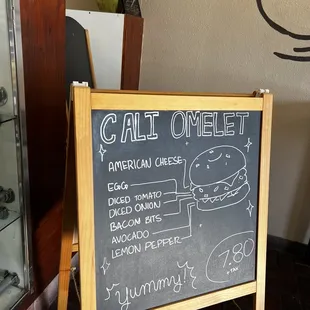 CALI OMELET
AMERICAN CHEESE
EGG
DICED TOMATO
DICED ONION
BACON BITS
AVOCADO
LEMON PEPPER
7.80
+ TAX
Yummy!